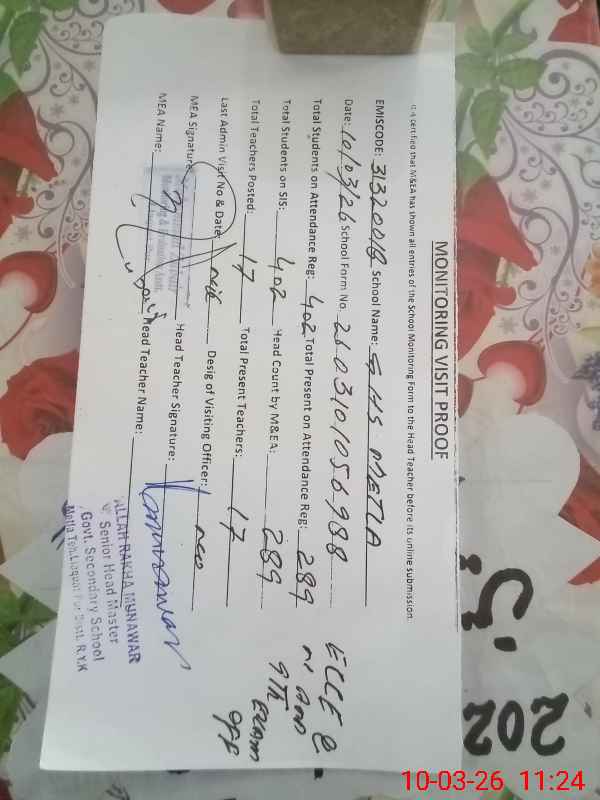 MONITORING VISIT PROOF
It is certified that M&EA has shown all entries of the School Monitoring Form to the Head Teacher before its online submission.
EMISCODE: 31320018 School Name: GHS METLA
Date: 10/03/26 School Form No. 2603101056988
Total Students on Attendance Reg: 402 Total Present on Attendance Reg: 289
Total Students on SIS: 402 Head Count by M&EA: 289
Total Teachers Posted: 17 Total Present Teachers: 17
Last Admin Visit No & Date: Desig of Visiting Officer:
MEA Signature: Head Teacher Signature:
MEA Name: Head Teacher Name:
ECCE &
9th
Exam
OFF
ALLAH RAKHA MUNAWAR
Senior Head Master
Govt. Secondary School
Metla Teh. Liaquat Pur Distt. R.Y.K
202
10-03-26 11:24